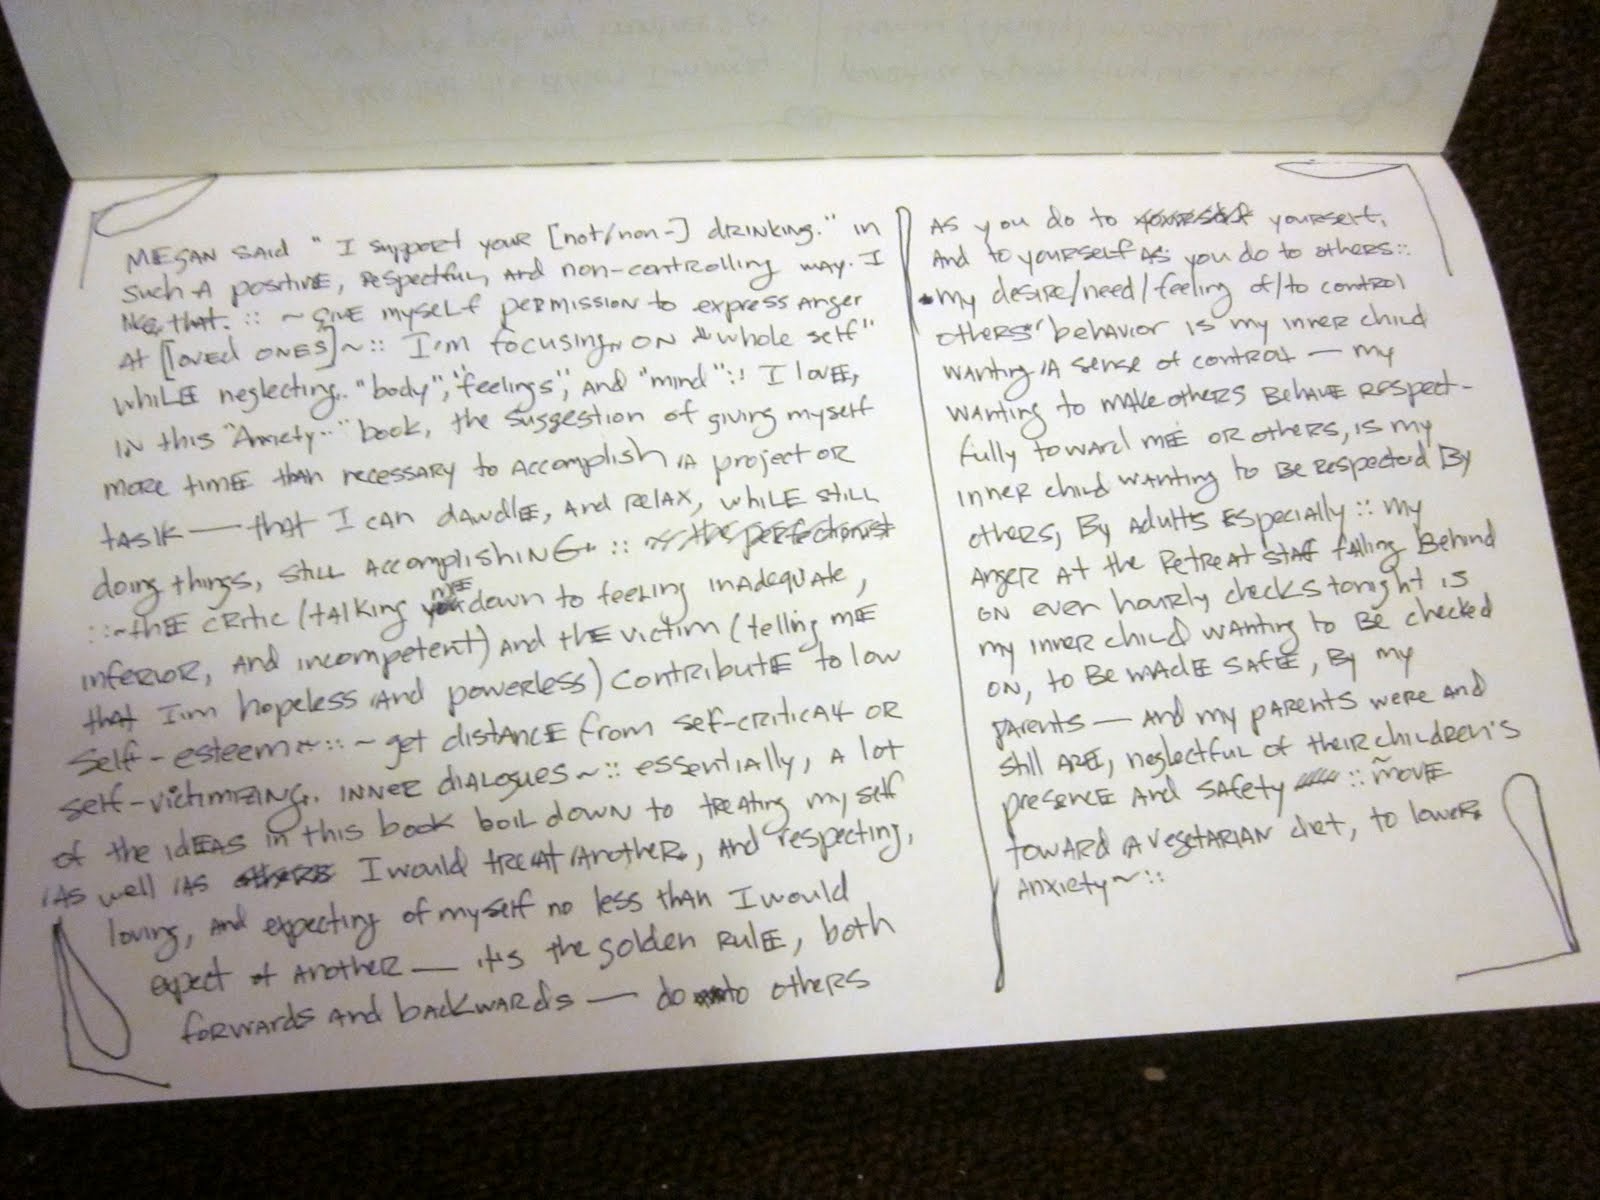 Megan said "I support your [not/non-] drinking." in
such a positive, respectful, and non-controlling way. I
like that. :: ~ give myself permission to express anger
at [loved ones] ~ :: I'm focusing on "whole self"
while neglecting "body", "feelings", and "mind" :: I love,
in this "Anxiety..." book, the suggestion of giving myself
more time than necessary to accomplish a project or
task — that I can dawdle, and relax, while still
doing things, still accomplishing. :: ~ the perfectionist
:: ~ the critic (talking me down to feeling inadequate,
inferior, and incompetent) and the victim (telling me
that I'm hopeless and powerless) contribute to low
self-esteem ~ :: ~ get distance from self-critical or
self-victimizing inner dialogues ~ :: essentially, a lot
of the ideas in this book boil down to treating myself
as well as others I would treat another, and respecting,
loving, and expecting of myself no less than I would
expect of another — it's the golden rule, both
forwards and backwards — do to others
as you do to yourself yourself,
and to yourself as you do to others ::
my desire/need/feeling of/to control
others' behavior is my inner child
wanting a sense of control — my
wanting to make others behave respect-
fully toward me or others, is my
inner child wanting to be respected by
others, by adults especially :: my
anger at the Retreat staff falling behind
on even hourly checks tonight is
my inner child wanting to be checked
on, to be made safe, by my
parents — and my parents were and
still are, neglectful of their children's
presence and safety :: ~ move
toward a vegetarian diet, to lower
anxiety ~ ::